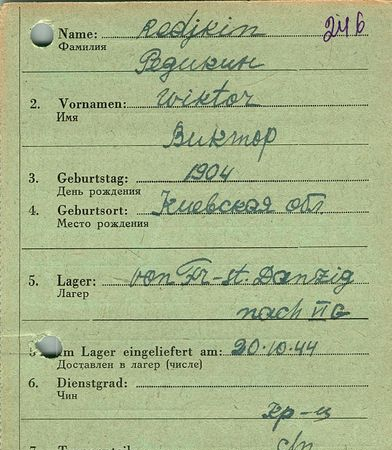 Name: Redjkin 246
Фамилия
Редикин
2. Vornamen: Wiktor
Имя
Виктор
3. Geburtstag: 1904
День рождения
4. Geburtsort: Киевская обл.
Место рождения
5. Lager: von Fr-st. Danzig
Лагер
nach II G
5 Im Lager eingeliefert am: 20.10.44
Доставлен в лагер (числе)
6. Dienstgrad:
Чин
кр-ц